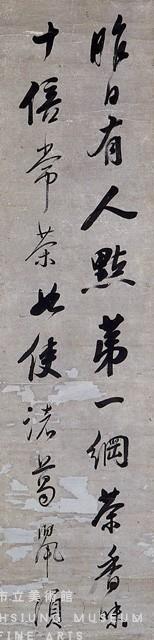 昨日有人點第一綱茶香味
十倍常茶如使諸葛佩頭
市立美術館
HSIUNG MUSEUM
FINE ARTS